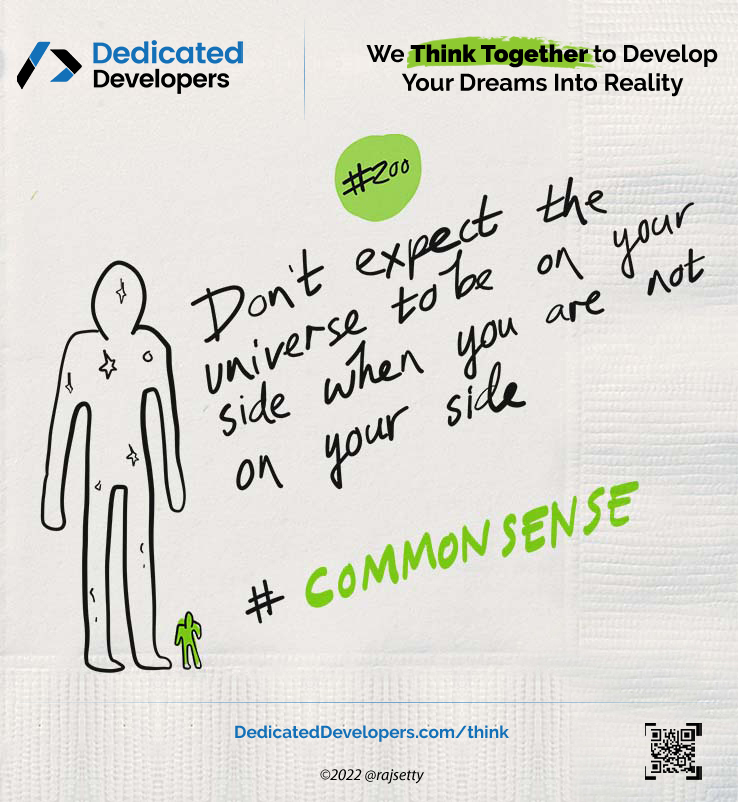 Dedicated
Developers
We Think Together to Develop
Your Dreams Into Reality
#200
Don't expect the
universe to be on your
side when you are not
on your side
# COMMON SENSE
DedicatedDevelopers.com/think
©2022 @rajsetty